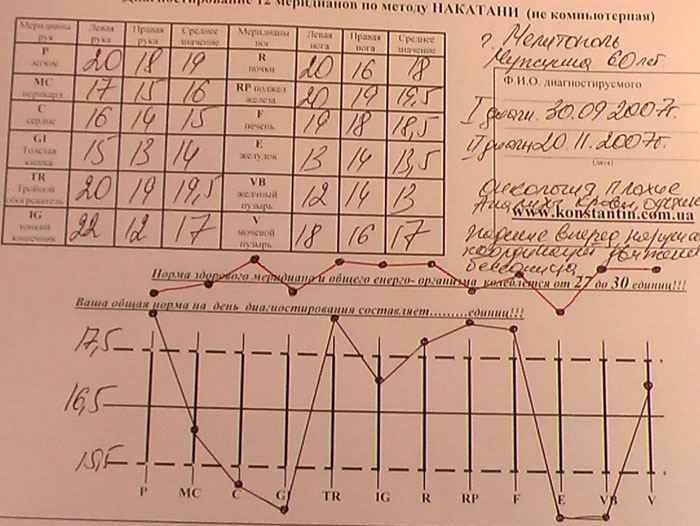 Диагностирование 12 меридианов по методу НАКАТАНИ (не компьютерная)
Меридианы рук Левая рука Правая рука Среднее значение Меридианы ног Левая нога Правая нога Среднее значение
P легкие 20 18 19 R почки 20 16 18
MC перикард 17 15 16 RP поджел железа 20 19 19,5
C сердце 16 14 15 F печень 19 18 18,5
GI Толстая кишка 15 13 14 E желудок 13 14 13,5
TR Тройной обогреватель 20 19 19,5 VB желчный пузырь 12 14 13
IG тонкий кишечник 22 12 17 V мочевой пузырь 18 16 17
г. Мелитополь
Мужчина 60 лет
Ф.И.О. диагностируемого
I диагн. 30.09 2007г.
II диагн 20.11.2007г.
(дата)
онкология плохие
анализы крови,
www.konstantin.com.ua
падение вперед,
координации
бессоница
Норма здорового меридиана и общего енерго- организма колеблется от 27 до 30 единиц!!!
Ваша общая норма на день диагностирования составляет.........единиц!!!
17,5
16,5
15,5
P MC C GI TR IG R RP F E VB V